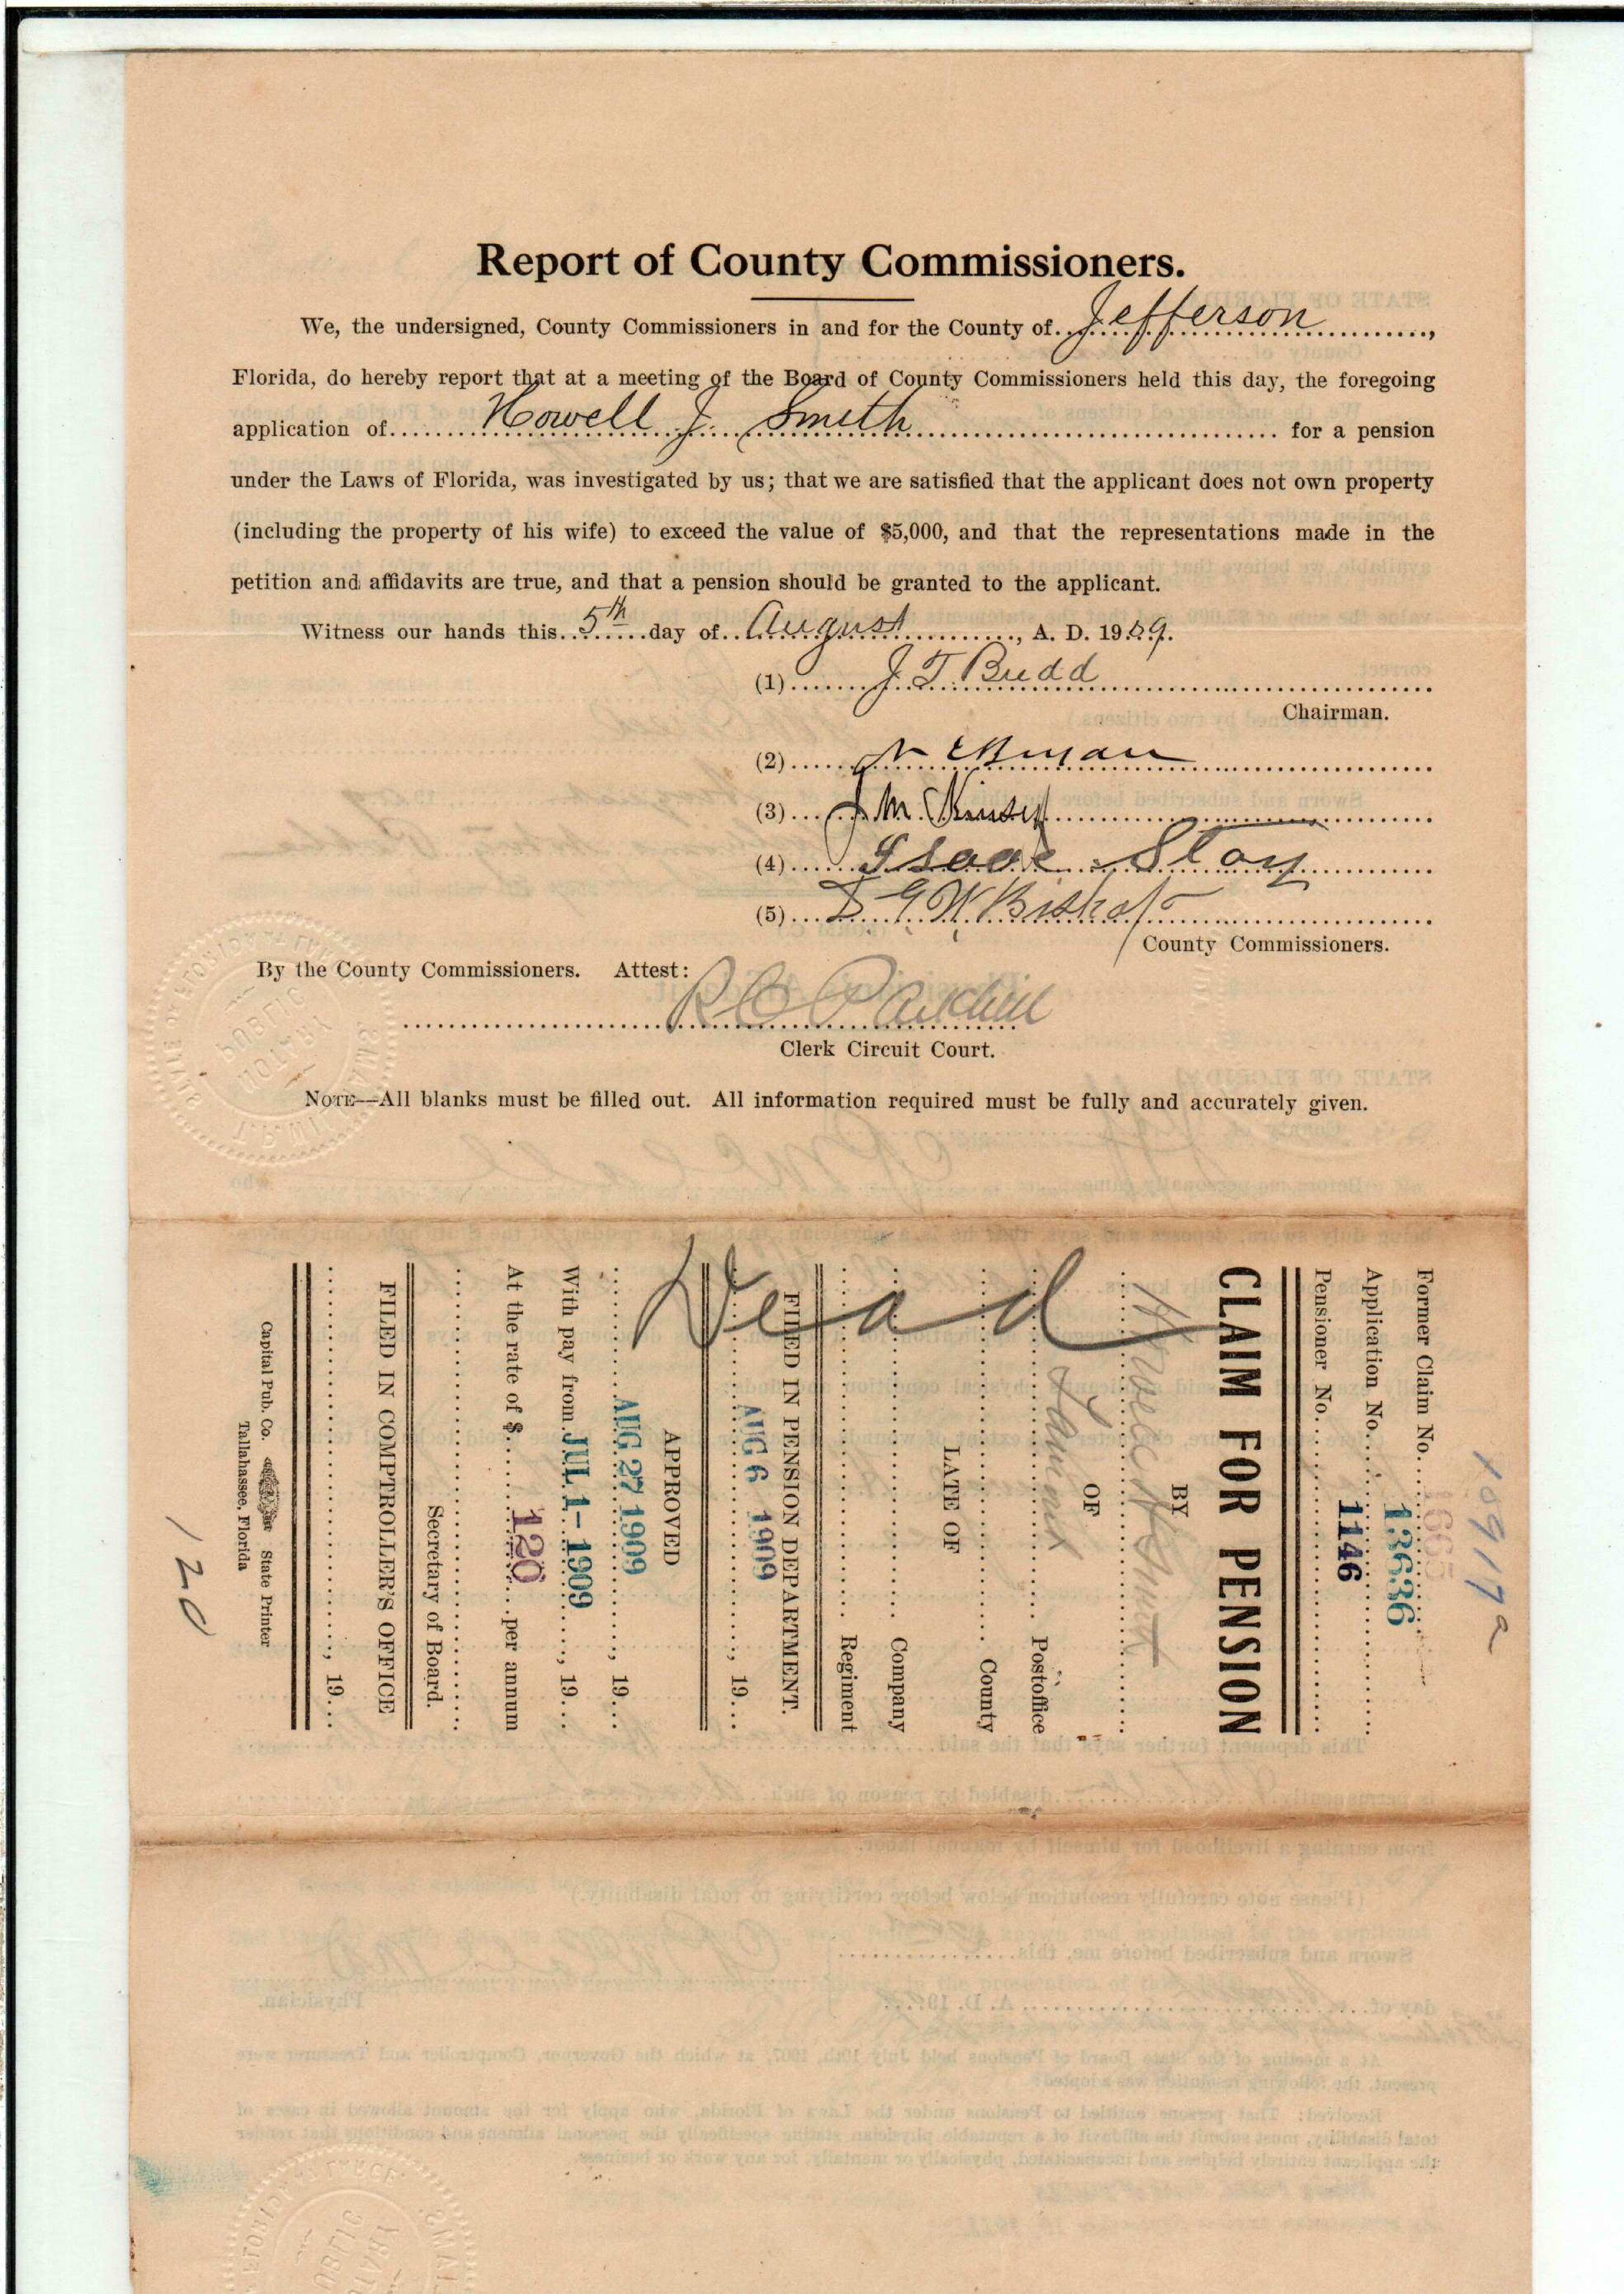 Report of County Commissioners.
We, the undersigned, County Commissioners in and for the County of Jefferson,
Florida, do hereby report that at a meeting of the Board of County Commissioners held this day, the foregoing
application of Howell J. Smith for a pension
under the Laws of Florida, was investigated by us; that we are satisfied that the applicant does not own property
(including the property of his wife) to exceed the value of $5,000, and that the representations made in the
petition and affidavits are true, and that a pension should be granted to the applicant.
Witness our hands this 5th day of August, A. D. 1909.
(1) J T Budd
Chairman.
(2)
(3) J. M. Kinsey
(4) Isaac Slay
(5) G W Bishop
County Commissioners.
By the County Commissioners. Attest:
R C Parkhill
Clerk Circuit Court.
NOTE—All blanks must be filled out. All information required must be fully and accurately given.
10917
Former Claim No.
Application No. 13636
Pensioner No. 1146
CLAIM FOR PENSION
BY
Smith
OF
Lamont Postoffice
County
LATE OF
Company
Regiment
Dead
FILED IN PENSION DEPARTMENT.
AUG 6 1909, 19
APPROVED
AUG 27 1909, 19
With pay from JUL 1 - 1909, 19
At the rate of $ 120 per annum
Secretary of Board.
FILED IN COMPTROLLER'S OFFICE
, 19
Capital Pub. Co. State Printer
Tallahassee, Florida
120